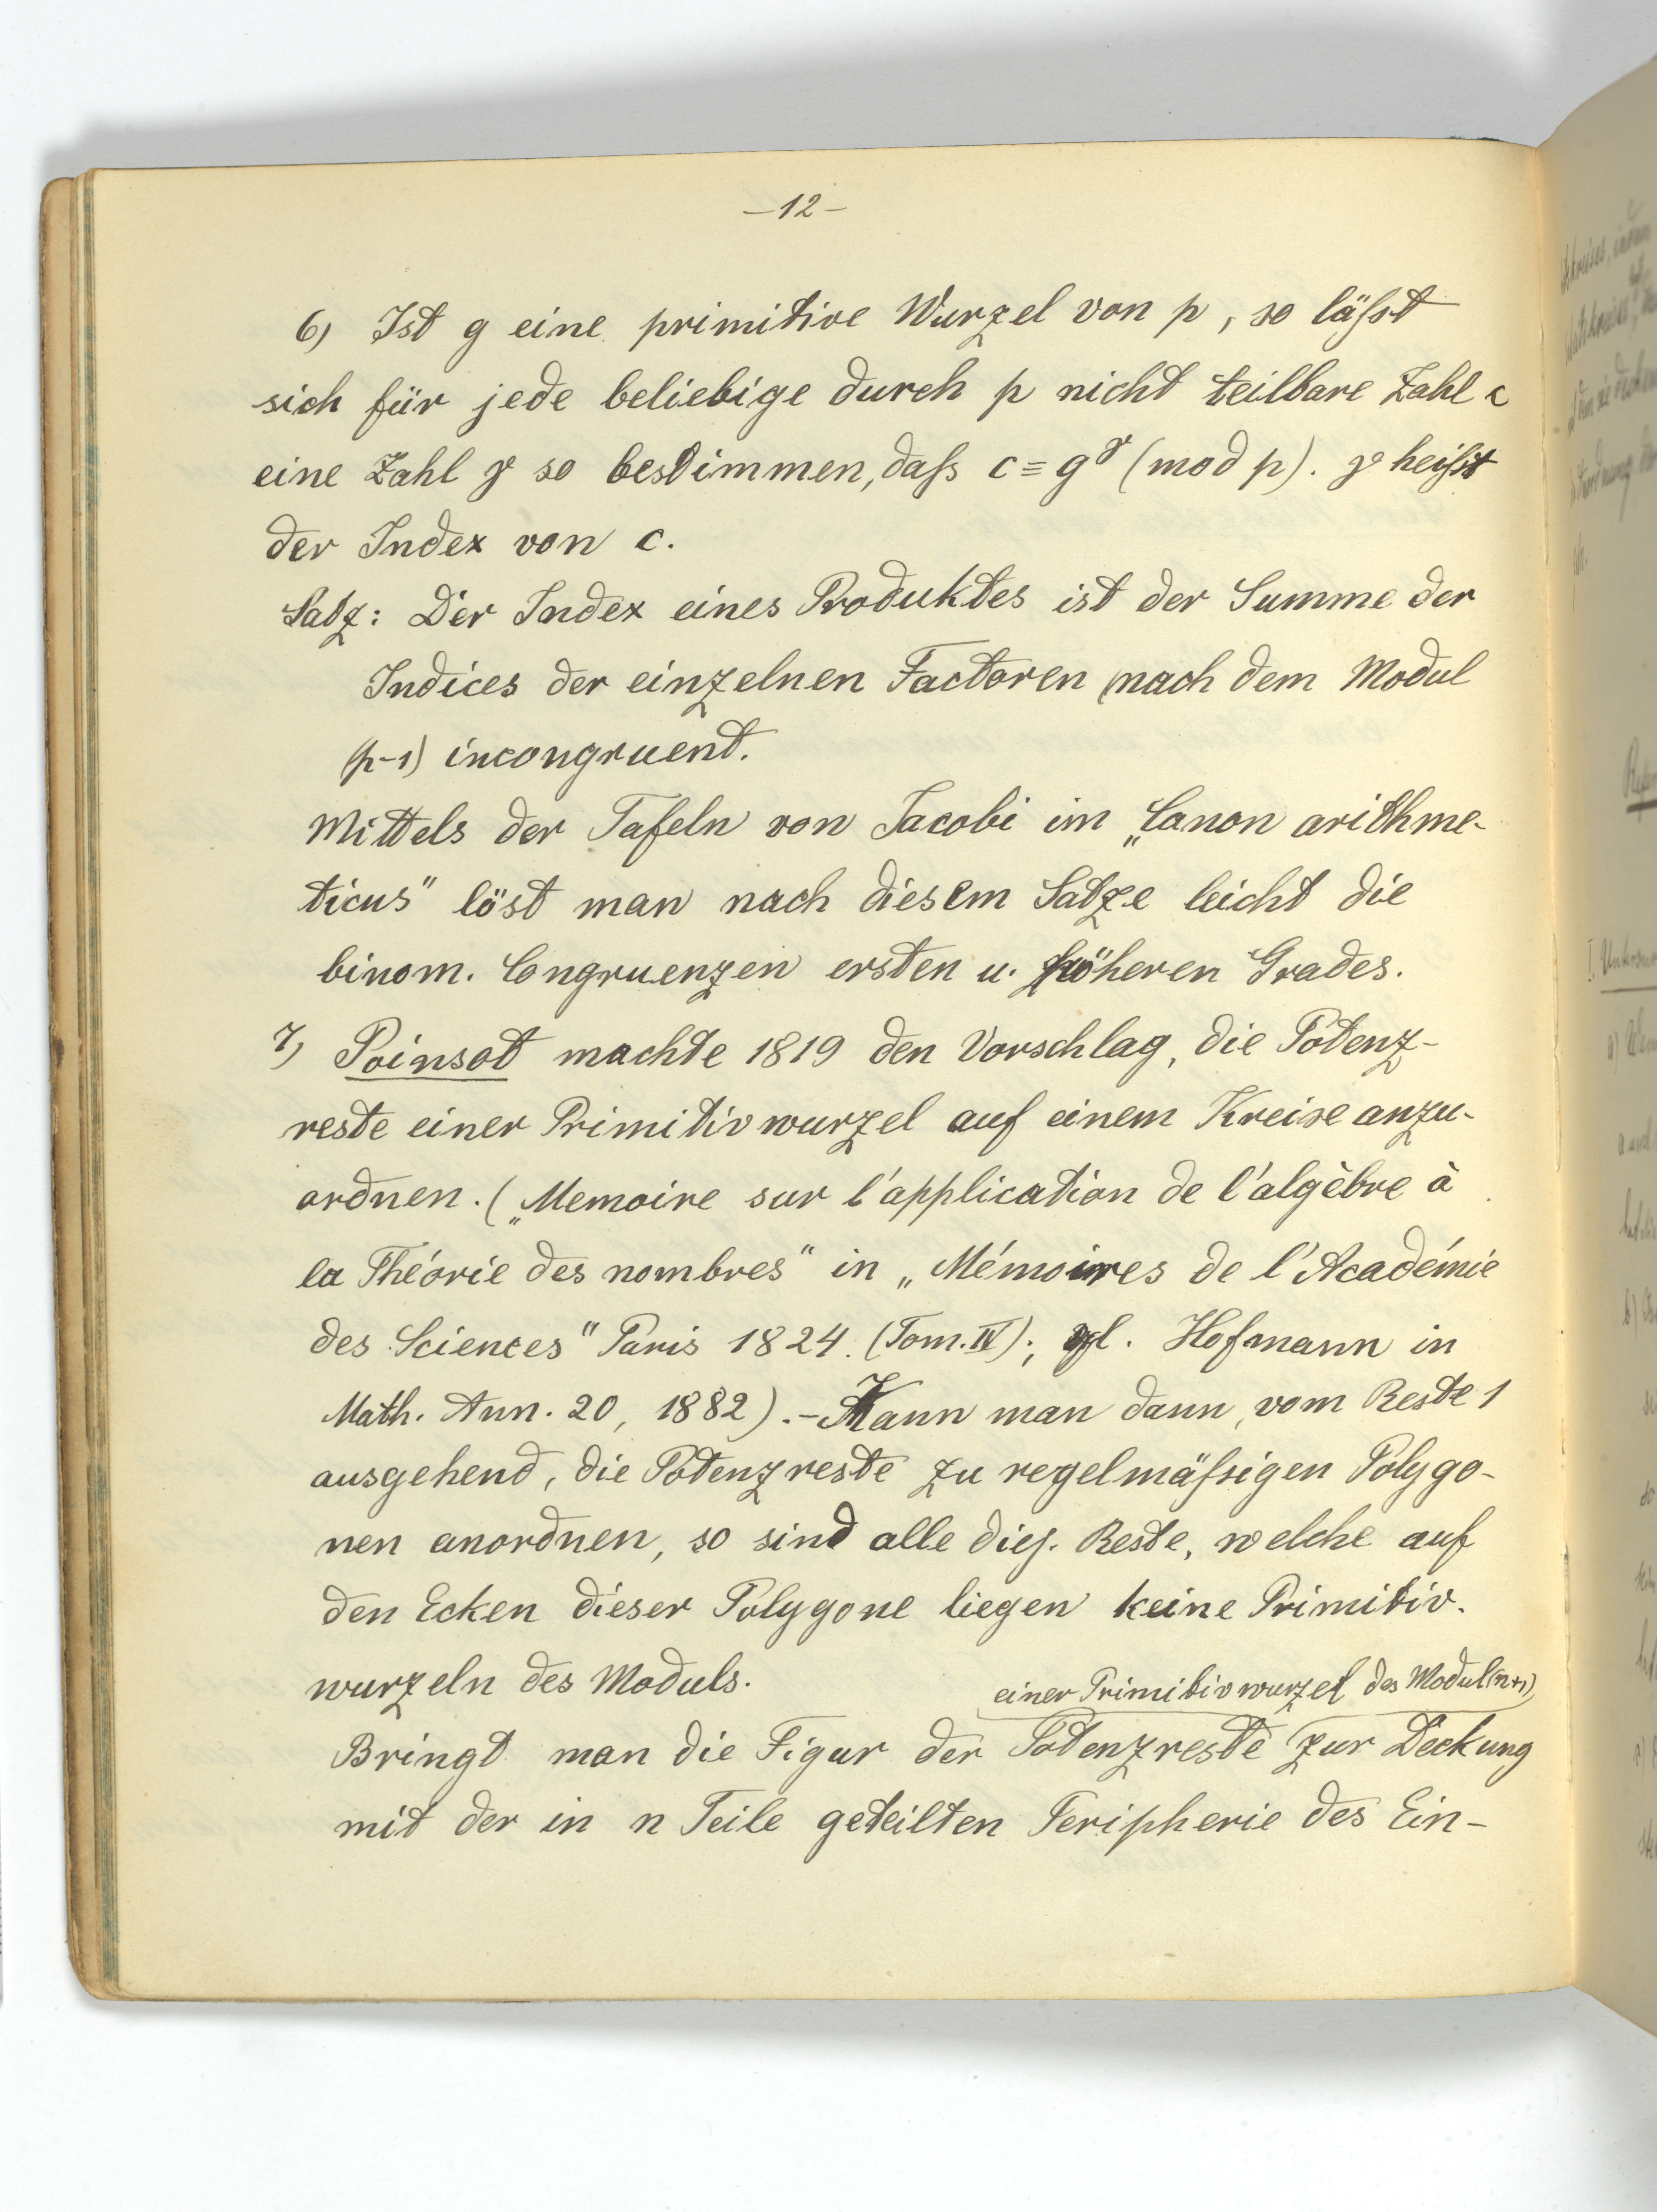 –12–
6) Ist g eine primitive Wurzel von p, so läſst
sich für jede beliebige durch p nicht teilbare Zahl c
eine Zahl γ so bestimmen, daſs c ≡ g^γ (mod p). γ heiſst
der Index von c.
Satz: Der Index eines Produktes ist der Summe der
Indices der einzelnen Factoren nach dem Modul
(p-1) incongruent.
Mittels der Tafeln von Jacobi im „Canon arithme-
ticus" löst man nach diesem Satze leicht die
binom. Congruenzen ersten u. höheren Grades.
7) Poinsot machte 1819 den Vorschlag, die Potenz-
reste einer Primitivwurzel auf einem Kreise anzu-
ordnen. („Memoire sur l'application de l'algèbre à
la Théorie des nombres" in „Mémoires de l'Académie
des Sciences" Paris 1824. (Tom. IV); vgl. Hofmann in
Math. Ann. 20, 1882). – Kann man dann, vom Reste 1
ausgehend, die Potenzreste zu regelmäſsigen Polygo-
nen anordnen, so sind alle diej. Reste, welche auf
den Ecken dieser Polygone liegen keine Primitiv-
wurzeln des Moduls.
einer Primitivwurzel des Modul (n+1)
Bringt man die Figur der Potenzreste zur Deckung
mit der in n Teile geteilten Peripherie des Ein-